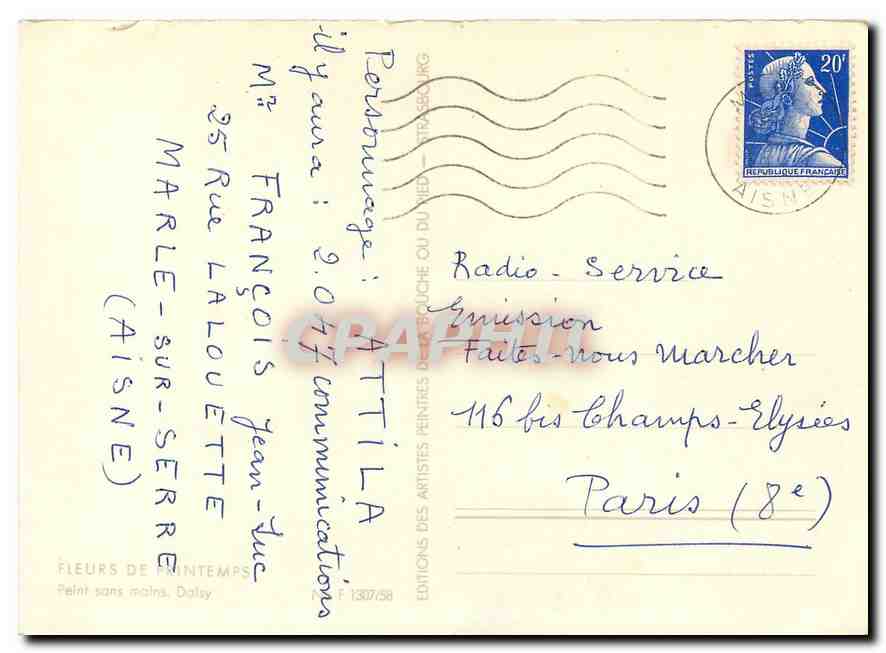 Personnage : ATTILA
il y aura : 2.047 communications
Mr FRANÇOIS Jean-Luc
25 Rue LALOUETTE
MARLE-SUR-SERRE
(AISNE)
EDITIONS DES ARTISTES PEINTRES DE LA BOUCHE OU DU PIED — STRASBOURG
POSTES
20F
REPUBLIQUE FRANÇAISE
AISNE
Radio - Service
Emission
Faites-nous Marcher
116 bis Champs-Elysées
Paris (8e)
FLEURS DE PRINTEMPS
Peint sans mains. Daisy
F 1307/58
CPAPHIL